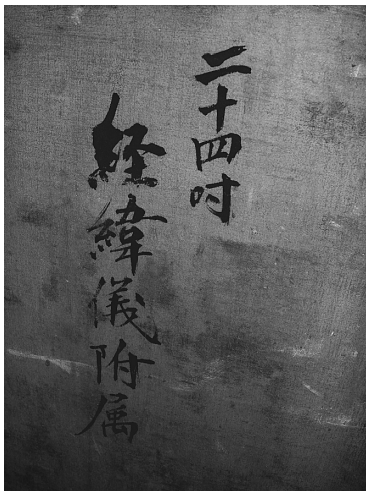 二十四吋
経緯儀附属